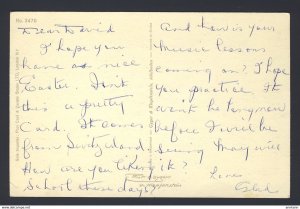 No. 2470
Dear David
I hope you
have a nice
Easter. Isn't
this a pretty
Card. It comes
from Switzerland
How are you liking it?
School these days?
And how is your
music lessons
coming on? I hope
you practice. It
wont be long now
before I will be
seeing May will
Love